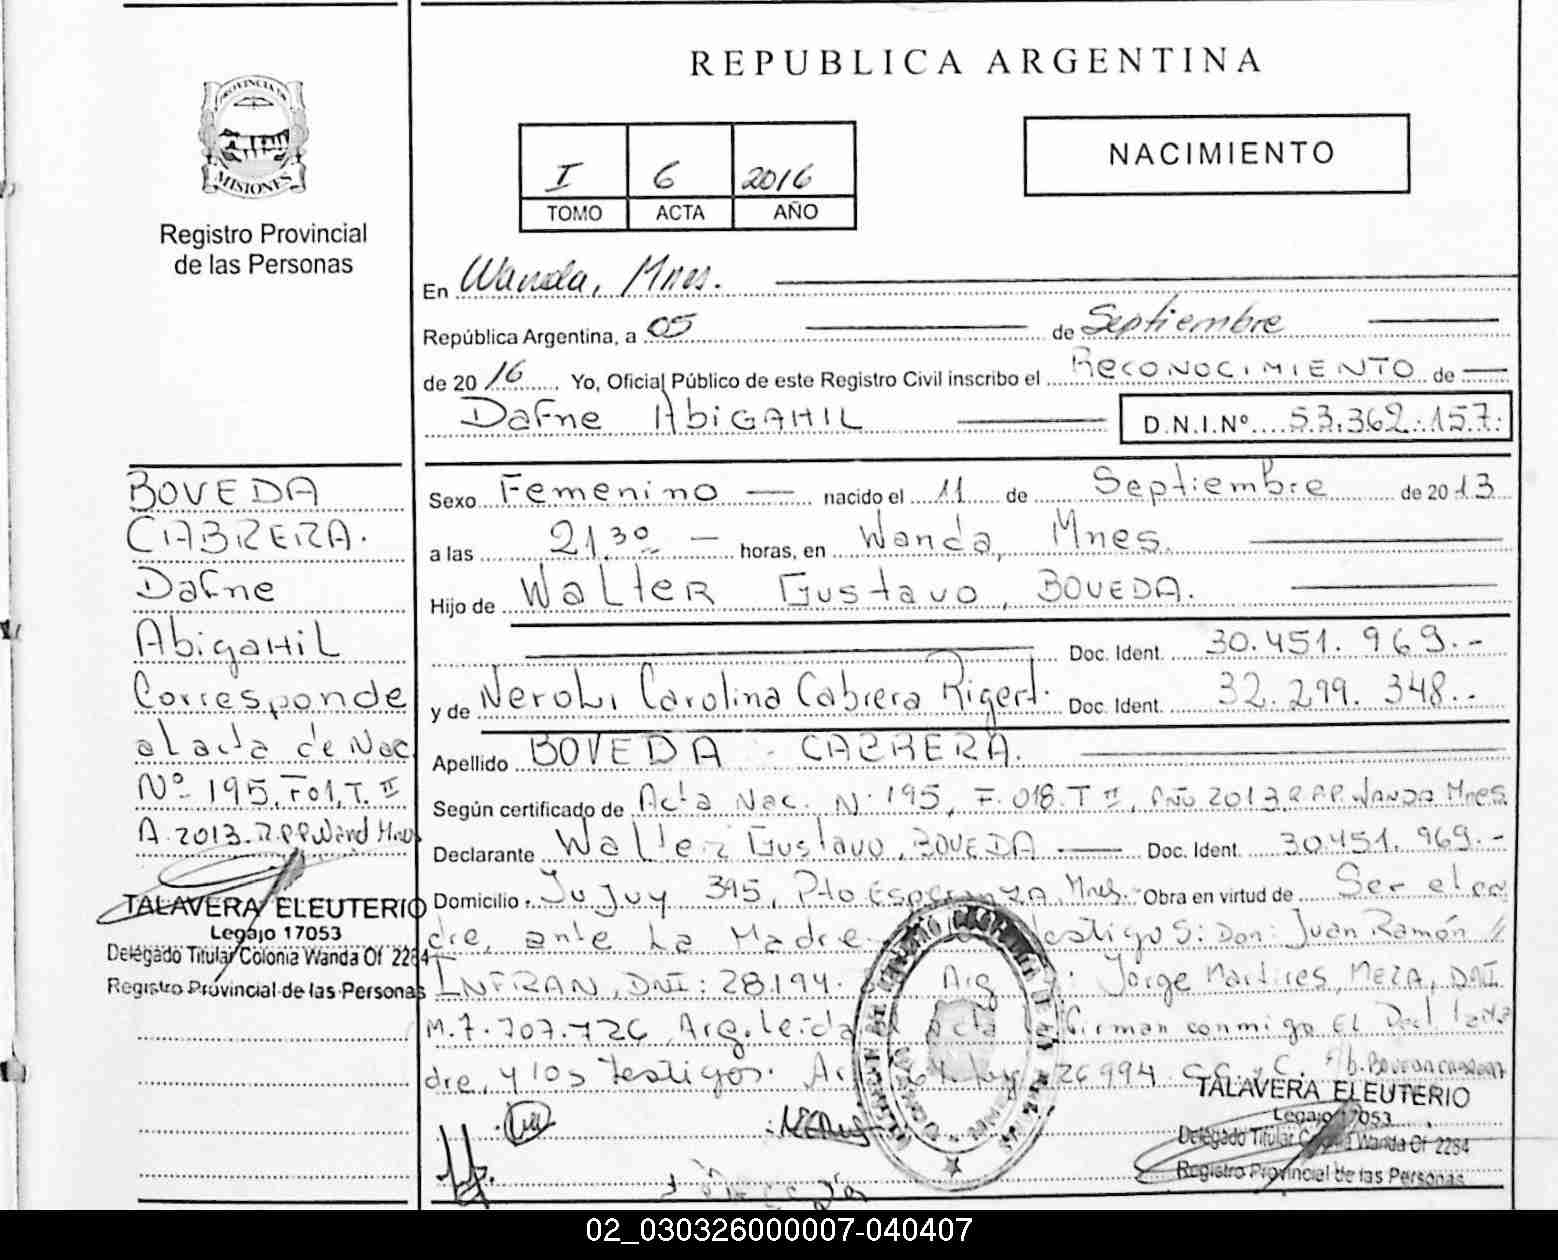 REPUBLICA ARGENTINA
PROVINCIA DE
MISIONES
Registro Provincial
de las Personas
I 6 2016
TOMO ACTA AÑO
NACIMIENTO
En Wanda, Mnes.
República Argentina, a 05 de Septiembre
de 2016 Yo, Oficial Público de este Registro Civil inscribo el RECONOCIMIENTO de
Dafne AbiGAHIL D.N.I.Nº 53.362.157.
Sexo Femenino nacido el 11 de Septiembre de 2013
a las 21.30 horas, en Wanda, Mnes.
Hijo de Walter Gustavo, BOVEDA.
Doc. Ident. 30.451.969.-
y de Neroli Carolina Cabrera Rigert. Doc. Ident. 32.299.348.-
Apellido BOVEDA CABRERA.
Según certificado de Acta Nac. Nº 195, F. 018. T II, Año 2013 R.P.P. WANDA Mnes
Declarante Walter Gustavo, BOVEDA Doc. Ident. 30.451.969.-
Domicilio Jujuy 395, Pto Esperanza, Mnes. Obra en virtud de Ser el pa
dre, ante La Madre testigos: Don: Juan Ramón //
INFRAN, DNI: 28.194. Arg : Jorge Martires, MEZA, DNI
M.7.707.726, Arg. Leida acta La firman conmigo El Decl. la Ma
dre, y los testigos. 26994 C.C. y C.
TALAVERA ELEUTERIO
Legajo 17053
Delegado Titular Colonia Wanda Of 2284
Registro Provincial de las Personas
BOVEDA
CABRERA.
Dafne
AbigaHiL
Corresponde
al acta de Nac.
Nº 195, F01, T. II
A. 2013. R.P.P. Wand Mnes
TALAVERA ELEUTERIO
Legajo 17053
Delegado Titular Colonia Wanda Of 2284
Registro Provincial de las Personas
02_030326000007-040407